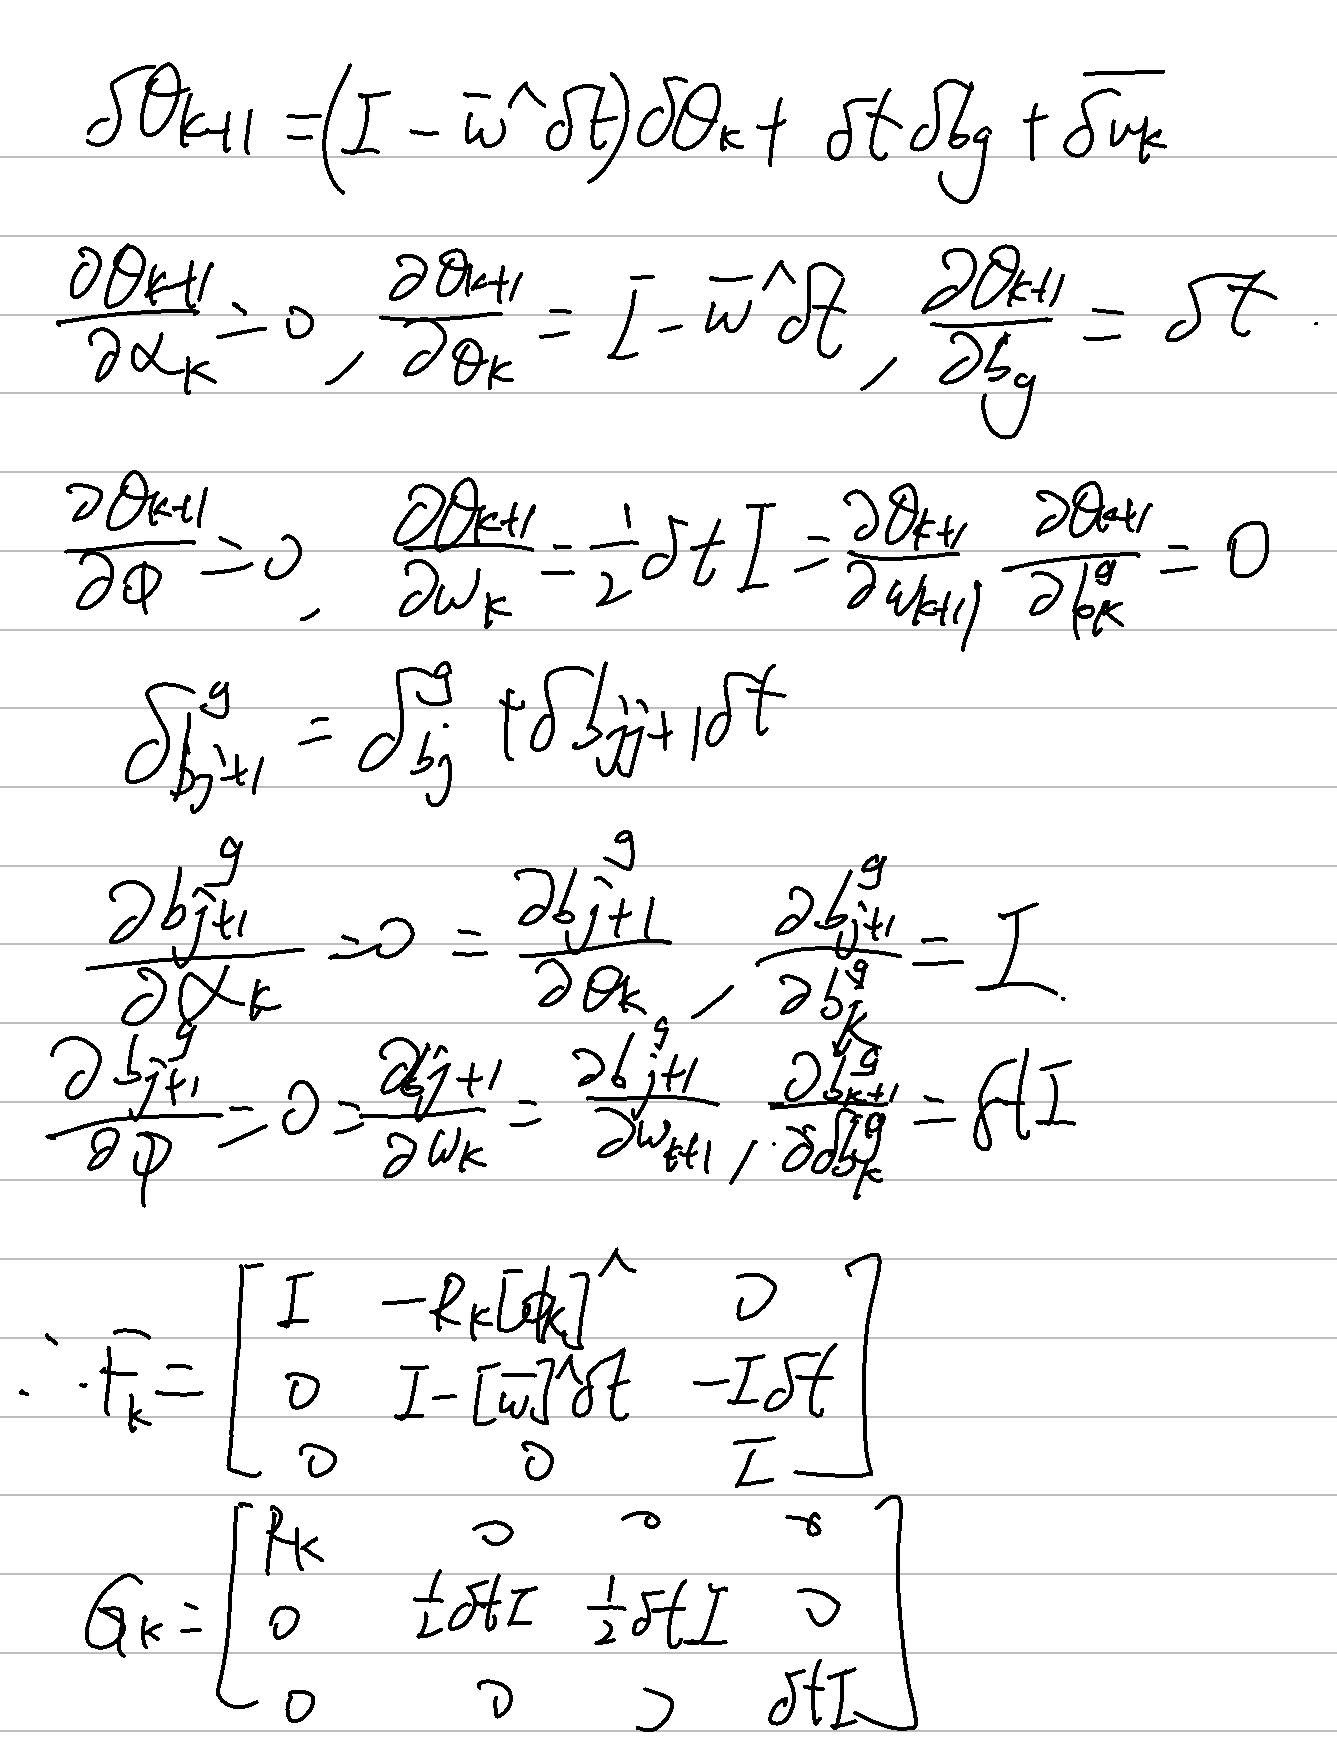 δθ_{k+1} = (I - w̄^δt)δθ_k + δt δb_g + \overline{δv_k}
∂θ_{k+1}/∂α_k = 0, ∂θ_{k+1}/∂θ_k = I - w̄^δt, ∂θ_{k+1}/∂b_g = δt.
∂θ_{k+1}/∂φ = 0, ∂θ_{k+1}/∂w_k = 1/2 δt I = ∂θ_{k+1}/∂w_{k+1}, ∂θ_{k+1}/∂b_k^g = 0
δ_{b_{j+1}}^g = δ_{b_j}^g + δb_{jj+1}δt
∂b_{j+1}^g/∂α_k = 0 = ∂b_{j+1}^g/∂θ_k, ∂b_{j+1}^g/∂b_k^g = I.
∂b_{j+1}^g/∂φ = 0 = ∂b_{j+1}/∂w_k = ∂b_{j+1}^g/∂w_{k+1}, ∂b_{k+1}^g/∂δb_k^g = δt I
∴ F_k = [ I  -R_k[φ_k]^  0
0  I-[w̄]^δt  -Iδt
0  0  I ]
G_k = [ R_k  0  0  0
0  1/2 δt I  1/2 δt I  0
0  0  0  δt I ]